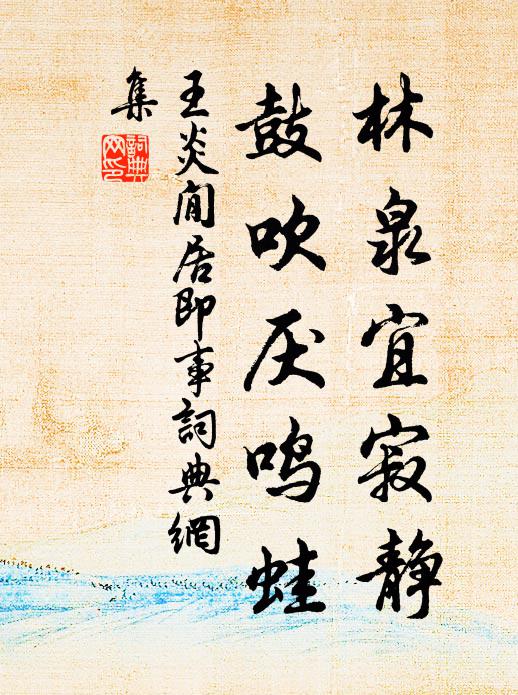 林泉宜寂静
鼓吹厌鸣蛙
王炎闲居即事词典網
集
詞典
网印